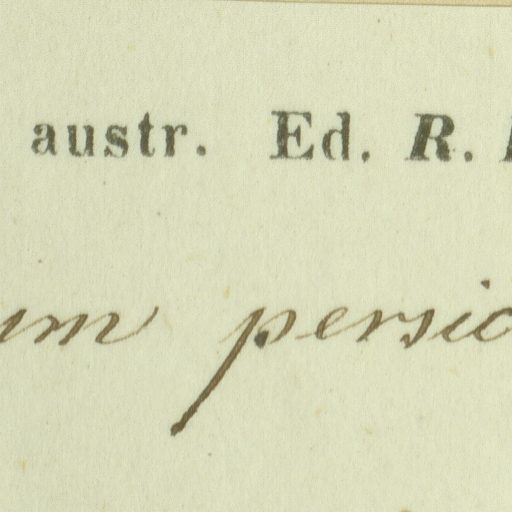 austr. Ed. R.
um persic